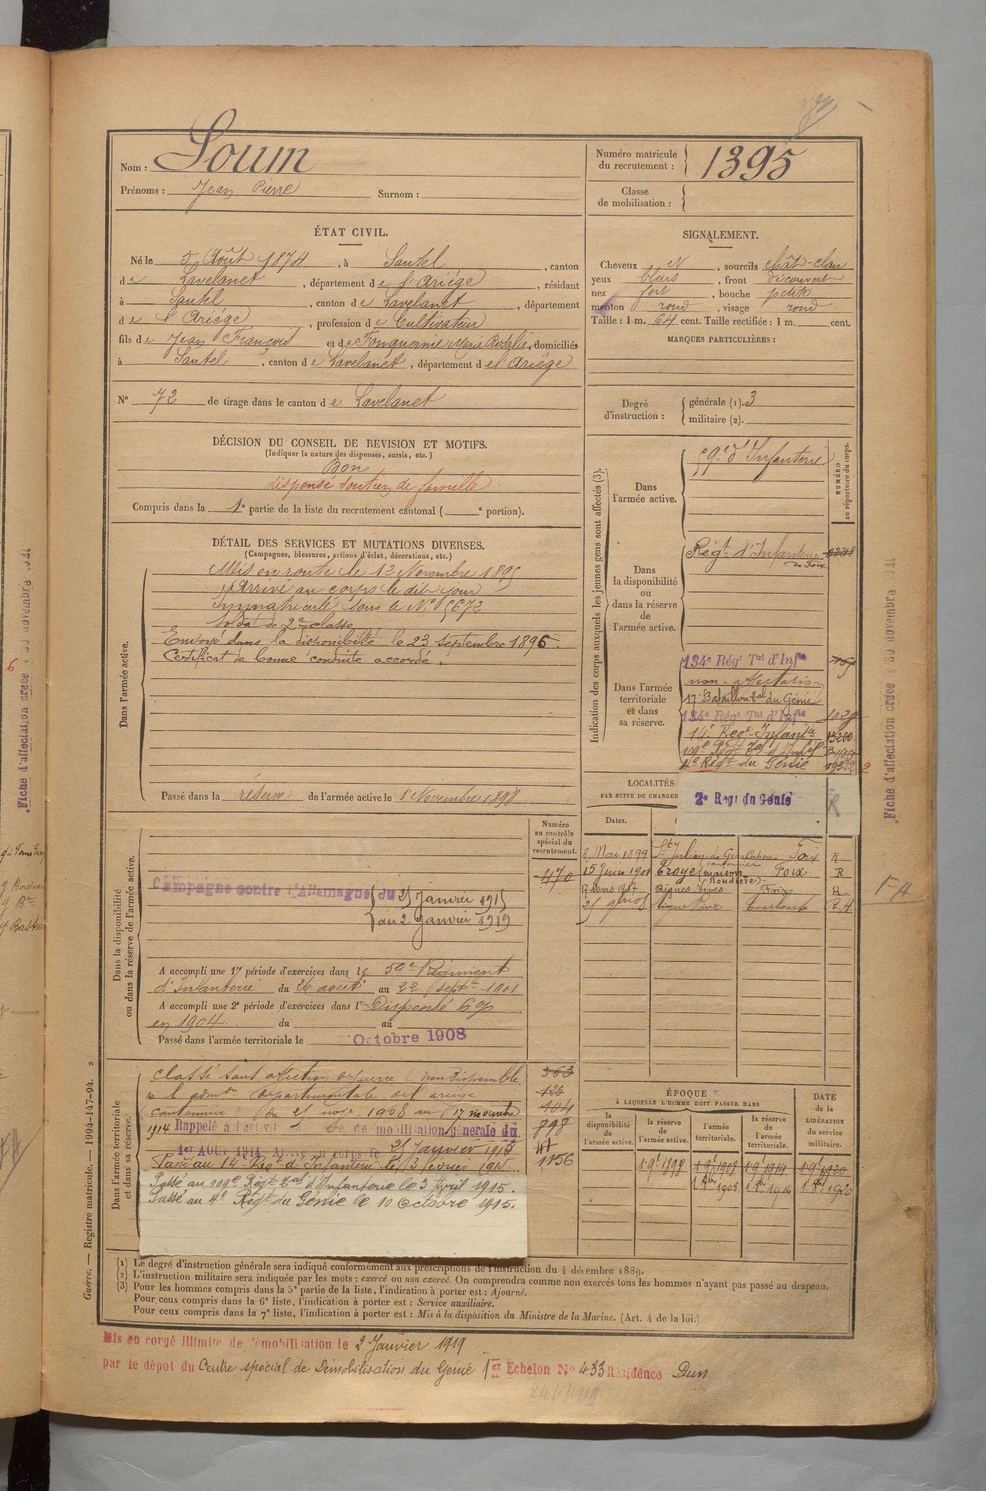 Nom : Soum
Prénoms : Jean Pierre Surnom :
Numéro matricule du recrutement : 1395
Classe de mobilisation :
ÉTAT CIVIL.
Né le 5 Août 1874, à Sautel, canton
de Lavelanet, département de l'Ariège, résidant
à Sautel, canton de Lavelanet, département
de l'Ariège, profession de Cultivateur
fils de Jean François et de Marie Rosalie, domiciliés
à Sautel, canton de Lavelanet, département de l'Ariège
N° 72 de tirage dans le canton de Lavelanet
SIGNALEMENT.
Cheveux N, sourcils chât-clair
yeux bleus, front découvert
nez fort, bouche petite
menton rond, visage rond
Taille : 1 m. 64 cent. Taille rectifiée : 1 m. cent.
MARQUES PARTICULIÈRES :
Degré d'instruction : générale (1). 3
militaire (2).
DÉCISION DU CONSEIL DE REVISION ET MOTIFS.
(Indiquer la nature des dispenses, sursis, etc.)
Bon
dispensé soutien de famille
Compris dans la 1e partie de la liste du recrutement cantonal ( e portion).
DÉTAIL DES SERVICES ET MUTATIONS DIVERSES.
(Campagnes, blessures, actions d'éclat, décorations, etc.)
Dans l'armée active.
Mis en route le 13 Novembre 1895
Arrivé au corps le dit jour
Immatriculé sous le N° 5673
Soldat de 2e classe
Envoyé dans la disponibilité le 23 Septembre 1896.
Certificat de bonne conduite accordé.
Passé dans la réserve de l'armée active le 1 Novembre 1898
Indication des corps auxquels les jeunes gens sont affectés (3).
NUMÉRO au répertoire du corps.
Dans l'armée active.
59e d'Infanterie
Dans la disponibilité ou dans la réserve de l'armée active.
Régt d'Infanterie de Foix
Dans l'armée territoriale et dans sa réserve.
134e Régt Tal d'Infie
non-affectation
17e Bataillon Tal du Génie
134e Régt Tal d'Infie
14e Régt Infanterie
4e Régt du Génie
2e Régt du Génie
Fiche d'affectation créée
LOCALITÉS
PAR SUITE DE CHANGEM
Dates.
8 Mai 1899 Foix R
15 Juin 1901 Troye Foix R
17 Mars 1907 Aigues Vives Foix R
Dans la disponibilité ou dans la réserve de l'armée active.
Numéro au contrôle spécial du recrutement.
470
Campagne contre l'Allemagne du 25 Janvier 1915
au 2 Janvier 1919
A accompli une 1re période d'exercices dans le 59e Régiment
d'Infanterie du 26 août au 22 Septbre 1901
A accompli une 2e période d'exercices dans l Dispensé
en 1904 du au
Passé dans l'armée territoriale le Octobre 1908
Dans l'armée territoriale et dans sa réserve.
Classé sans affectation
cantonnier du 25 nov. 1908 au 17 novembre
1914 Rappelé à l'activité de mobilisation générale du
1er AOUT 1914 25 Janvier 1915
Passé au 14e Régt d'Infanterie le 3 février 1915
Passé au 119e Régt Tal d'Infanterie le 3 Avril 1915.
Passé au 4e Régt du Génie le 10 Octobre 1915.
798
1156
ÉPOQUE
À LAQUELLE L'HOMME DOIT PASSER DANS
la disponibilité de l'armée active.
la réserve de l'armée active.
l'armée territoriale.
la réserve de l'armée territoriale.
DATE de la LIBÉRATION du service militaire.
1 9e 1898
1 9e 1908
1 9e 1914
1 9e 1920
(1) Le degré d'instruction générale sera indiqué conformément aux prescriptions de l'instruction du 4 décembre 1889.
(2) L'instruction militaire sera indiquée par les mots : exercé ou non exercé. On comprendra comme non exercés tous les hommes n'ayant pas passé au drapeau.
(3) Pour les hommes compris dans la 5e partie de la liste, l'indication à porter est : Ajourné.
Pour ceux compris dans la 6e liste, l'indication à porter est : Service auxiliaire.
Pour ceux compris dans la 7e liste, l'indication à porter est : Mis à la disposition du Ministre de la Marine. (Art. 4 de la loi.)
Guerre. — Registre matricule. — 1994-147-94.
Mis en congé illimité de démobilisation le 2 Janvier 1919
par le dépôt du Centre spécial de Démobilisation du Génie 1er Echelon N° 433 Résidence Dun